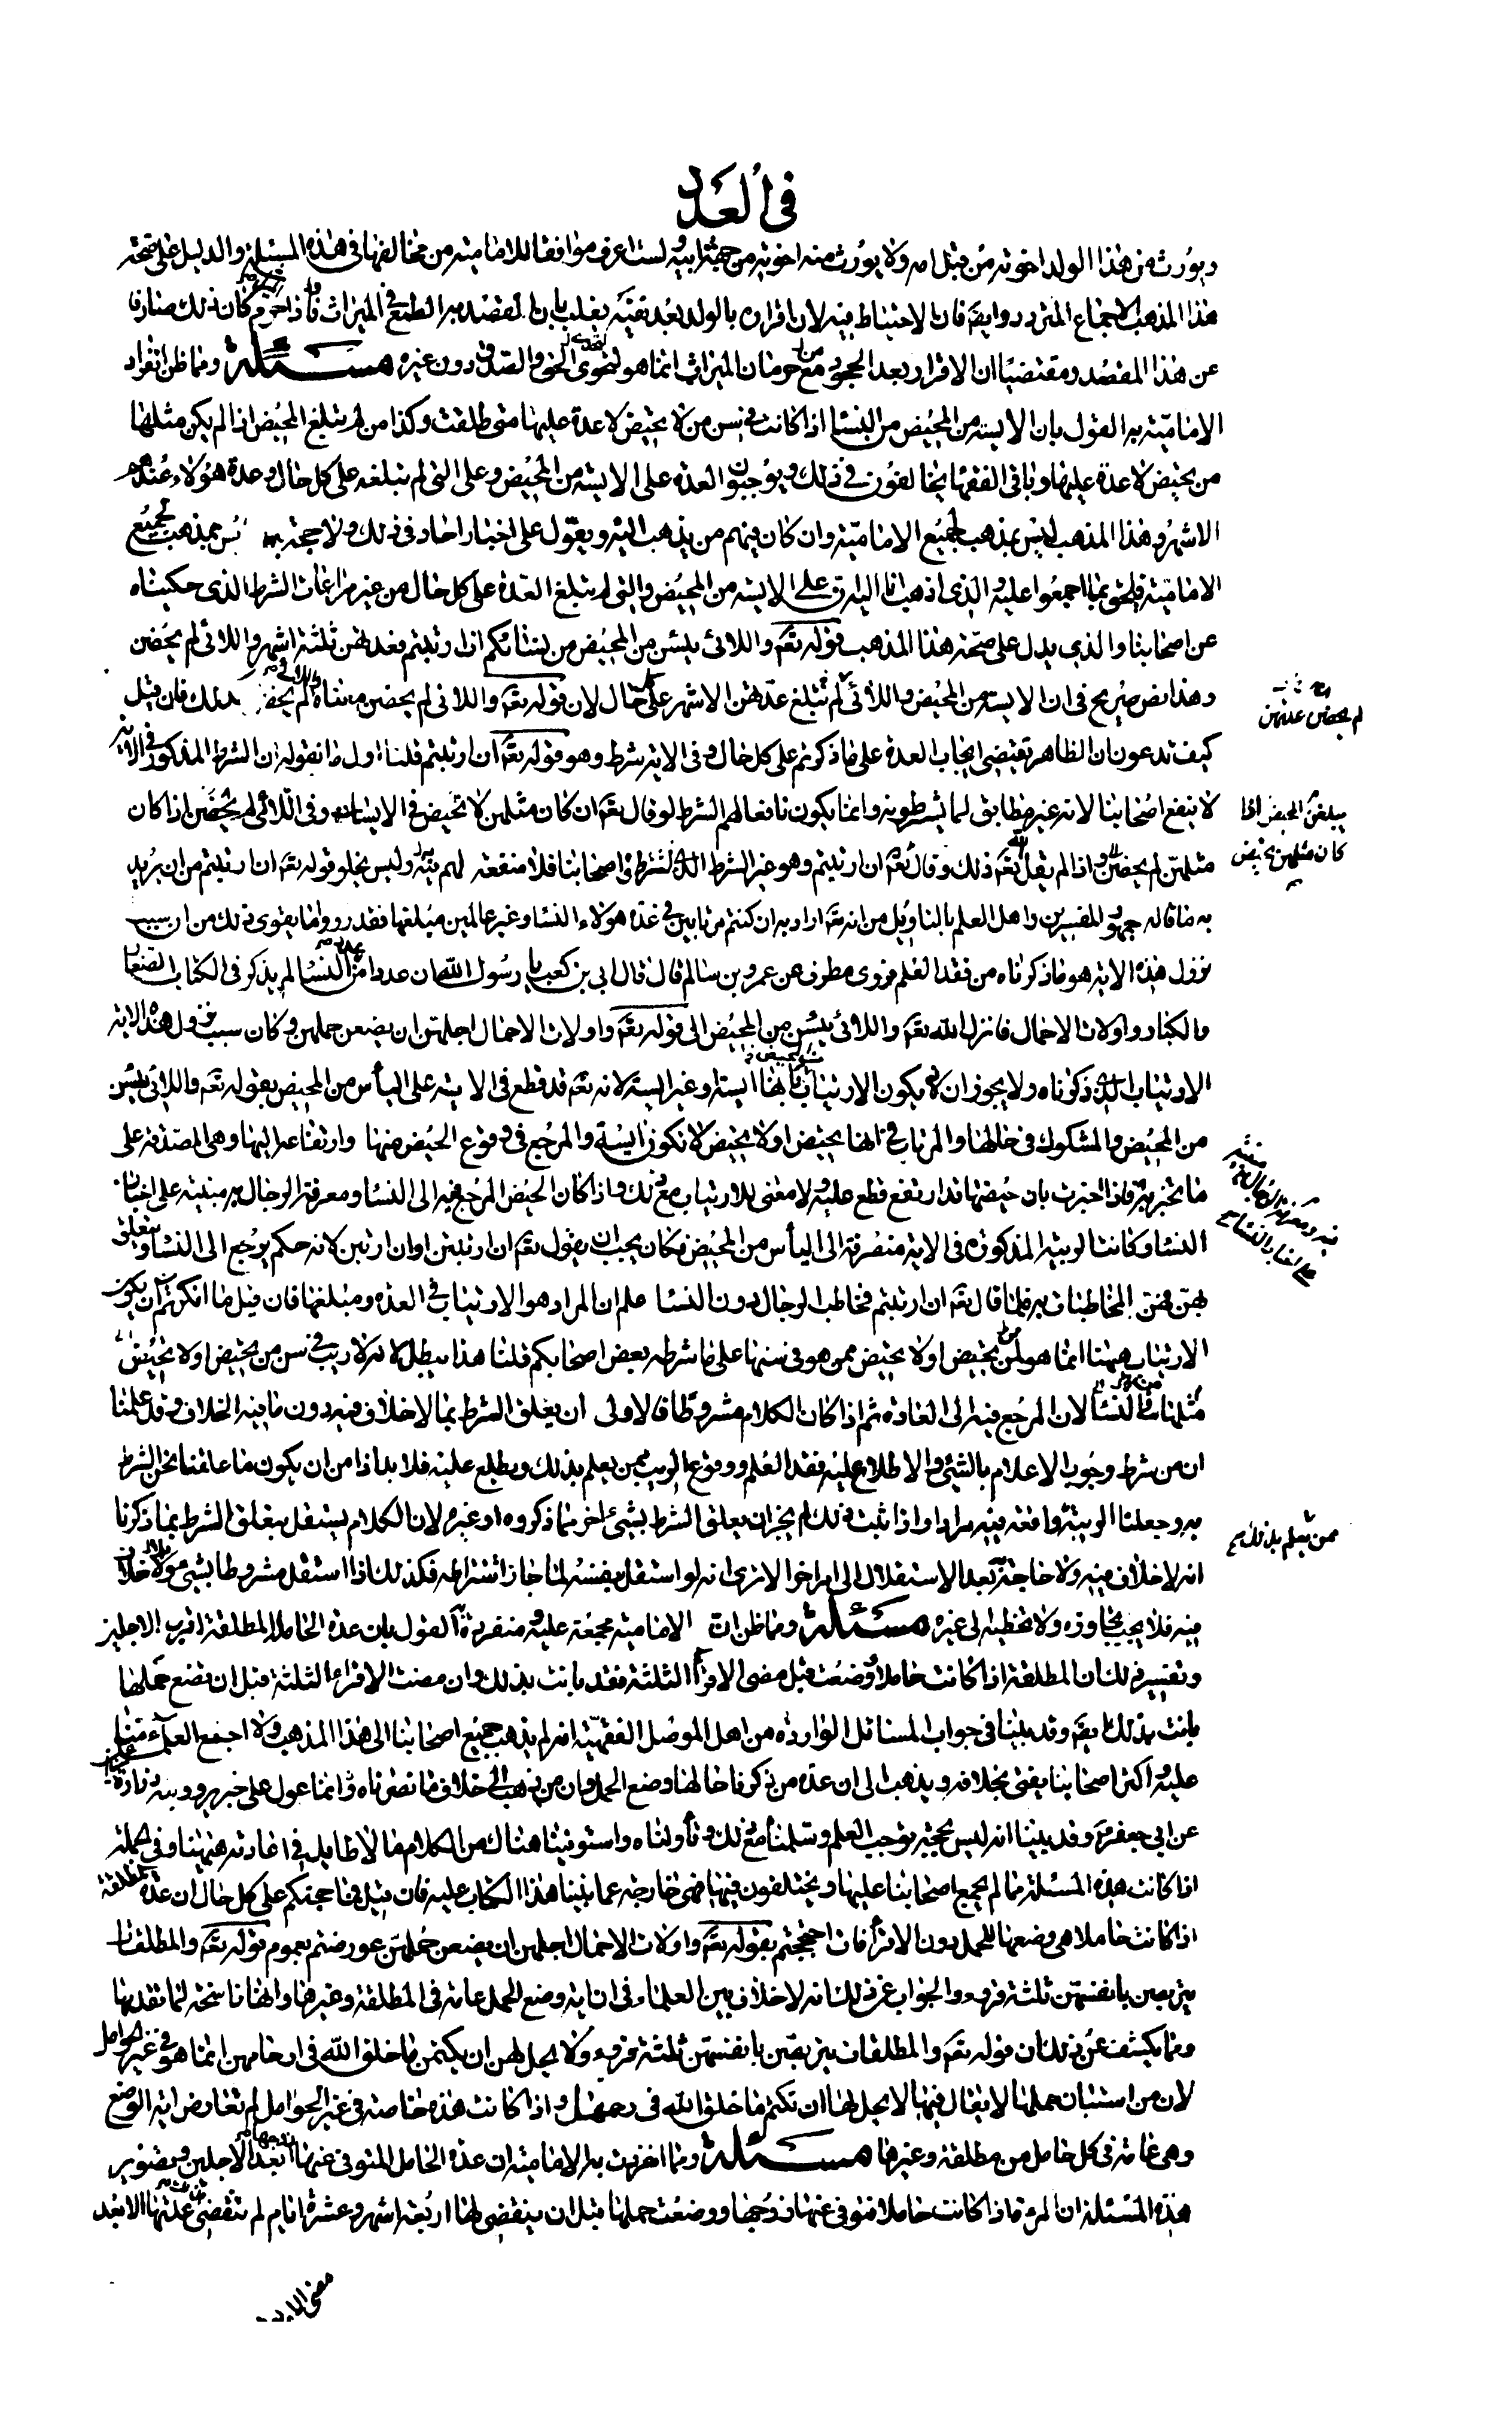 في العدد
ويورث من هذا الولد اخوته من قبل امه ولا يورث منه اخوته من جهة ابيه ولست اعرف موافقا للامامية من مخالفها في هذه المسئلة والدليل على صحة
هذا المذهب الاجماع المتردد وايضا فان الاحتياط فيه لان اقراره بالولد بعد نفيه يغلب بان القصد به الطمع في الميراث فاذا حرم كان ذلك صارفا
عن هذا المقصد ومقتضيا ان الاقرار بعد الجحود مع حرمان الميراث انما هو لتحري الحق والصدق دون غيره مسئلة ومما ظن انفراد
الامامية به القول بان الايسة من المحيض من النساء اذا كانت في سن من لا تحيض لا عدة عليها متى طلقت وكذا من لم تبلغ المحيض اذا لم يكن مثلها
من تحيض لا عدة عليها وباقي الفقهاء يخالفون في ذلك ويوجبون العدة على الايسة من المحيض وعلى التي لم تبلغه على كل حال وعدة هؤلاء عندهم
الاشهر وهذا المذهب ليس بمذهب لجميع الامامية وان كان فيهم من يذهب اليه ويعول على اخبار احاد في ذلك ولا حجة بها ليس بمذهب لجميع
الامامية فيلحق بما اجمعوا عليه والذي اذهب انا اليه ان على الايسة من المحيض والتي لم تبلغ العدة على كل حال من غير مراعات الشرط الذي حكيناه
عن اصحابنا والذي يدل على صحة هذا المذهب قوله تعم واللائي يئسن من المحيض من نسائكم ان ارتبتم فعدتهن ثلثة اشهر واللائي لم يحضن
وهذا نص صريح في ان الايسة من المحيض واللائي لم تبلغ عدتهن الاشهر على كل حال لان قوله تعم واللائي لم يحضن معناه واللائي لم يحضن كذلك فان قيل
كيف تدعون ان الظاهر يقتضي ايجاب العدة على ما ذكرتم على كل حال وفي الاية شرط وهو قوله تعم ان ارتبتم قلنا اول ما نقوله ان الشرط المذكور في الاية
لا ينفع اصحابنا لانه غير مطابق لما يشترطونه وانما يكون نافعا لهم الشرط لو قال تعم ان كان مثلهن لا تحيض في الايسات وفي اللائي لم يحضن اذا كان
مثلهن لم يحضن واذ لم يقل الله تعم ذلك وقال تعم ان ارتبتم وهو غير الشرط الذي شرطه اصحابنا فلا منفعة لهم فيه وليس يخلو قوله تعم ان ارتبتم من ان يريد
به ما قاله جمهور المفسرين واهل العلم بالتاويل من انه تعم اراد به ان كنتم مرتابين في عدة هؤلاء النساء وغير عالمين مبلغها فقد رووا ما يقوى ذلك من ان سبب
نزول هذه الاية هو ما ذكرناه من فقد العلم فروى مطرف عن عمرو بن سالم قال قال ابي بن كعب يا رسول الله ان عددا من النساء لم يذكر في الكتاب الصغار
والكبار واولات الاحمال فانزل الله تعم واللائي يئسن من المحيض الى قوله تعم واولات الاحمال اجلهن ان يضعن حملهن وكان سبب نزول هذه الاية
الارتياب الذي ذكرناه ولا يجوز ان يكون الارتياب بانها ايسة او غير ايسة لانه تعم قد قطع في الايسة على اليأس من المحيض بقوله تعم واللائي يئسن
من المحيض والمشكوك في حالها والمرتاب في انها تحيض او لا تحيض لا تكون ايسة والمرجع في وقوع الحيض منها وارتفاعه اليها وهي المصدقة على
ما تخبر به فاذا اخبرت بان حيضها قد ارتفع قطع عليه ولا معنى للارتياب مع ذلك واذا كان الحيض المرجع فيه الى النساء ومعرفة الرجال به مبنية على اخبار
النساء وكانت الريبة المذكورة في الاية منصرفة الى اليأس من المحيض فكان يجب ان يقول تعم ان ارتبتن او ان ارتبن لانه حكم يرجع الى النساء ويتعلق
بهن فهن المخاطبات به فلما قال تعم ان ارتبتم فخاطب الرجال دون النساء علم ان المراد هو الارتياب في العدة ومبلغها فان قيل ما انكرتم ان يكون
الارتياب ههنا انما هو بمن تحيض او لا تحيض ممن هو في سنها على ما شرطه بعض اصحابكم قلنا هذا يبطل لانه لا ريب في سن من تحيض او لا تحيض
مثلها من النساء لان المرجع فيه الى العادة ثم اذا كان الكلام مشروطا فالاولى ان يعلق الشرط بما لا خلاف فيه دون ما فيه الخلاف وقد علمنا
ان من شرط وجوب الاعلام بالشيء والاطلاع عليه فقد العلم ووقوع الريب ممن يعلم بذلك ويطلع عليه فلا بد اذا من ان يكون ما علقنا نحن الشرط
به وجعلنا الريبة واقعة فيه مرادا واذا ثبت ذلك لم يجز ان يعلق الشرط بشيء اخر مما ذكروه او غيره لان الكلام يستقل بتعلق الشرط بما ذكرنا
انه لا خلاف فيه ولا حاجة بعد الاستقلال الى امر اخر الا ترى انه لو استقل بنفسه لما جاز اشتراطه فكذلك اذا استقل مشروطا بشيء لا خلاف
فيه فلا يجب تجاوزه ولا تخطيه الى غيره مسئلة ومما ظن ان الامامية مجمعة عليه ومنفردة به القول بان عدة الحامل المطلقة اقرب الاجلين
وتفسير ذلك ان المطلقة اذا كانت حاملا ووضعت قبل مضى الاقراء الثلثة فقد بانت بذلك وان مضت الاقراء الثلثة قبل ان تضع حملها
بانت بذلك ايضا وقد بينا في جواب المسائل الواردة من اهل الموصل الفقهية انه لم يذهب جميع اصحابنا الى هذا المذهب ولا اجمع العلماء منا
عليه واكثر اصحابنا يفتي بخلافه ويذهب الى ان عدة من ذكرنا حالها وضع الحمل وان من ذهب الى خلاف ما نصرناه انما عول على خبر يرويه زرارة
عن ابي جعفر ع وقد بينا انه ليس بحجة توجب العلم وسلمنا مع ذلك وتأولناه واستوفينا هناك من الكلام ما لا طايل في اعادته ههنا وفي الجملة
اذا كانت هذه المسئلة مما لم يجمع اصحابنا عليها ويختلفون فيها فهي خارجة عما بنينا هذا الكتاب عليه فان قيل فما حجتكم على كل حال ان عدة المطلقة
اذا كانت حاملا هي وضعها للحمل دون الاقراء فان احتججتم بقوله تعم واولات الاحمال اجلهن ان يضعن حملهن عورضتم بعموم قوله تعم والمطلقات
يتربصن بانفسهن ثلثة قروء والجواب عن ذلك انه لا خلاف بين العلماء في ان اية وضع الحمل عامة في المطلقة وغيرها وانها ناسخة لما تقدمها
ومما يكشف عن ذلك ان قوله تعم والمطلقات يتربصن بانفسهن ثلثة قروء ولا يحل لهن ان يكتمن ما خلق الله في ارحامهن انما هو في غير الحوامل
لان من استبان حملها لا يقال فيها لا يحل لها ان تكتم ما خلق الله في رحمها واذا كانت هذه خاصة في غير الحوامل لم تعارض اية الوضع
وهي عامة في كل حامل من مطلقة وغيرها مسئلة ومما انفردت به الامامية ان عدة الحامل المتوفى عنها زوجها ابعد الاجلين وتصوير
هذه المسئلة ان المرءة اذا كانت حاملا فتوفى عنها زوجها ووضعت حملها قبل ان ينقضي لها اربعة اشهر وعشرة ايام لم تنقض عدتها الا بعد
لم يحضن عدتهن
يبلغن المحيض اذا
كان مثلهن تحيض
ممن يعلم بذلك